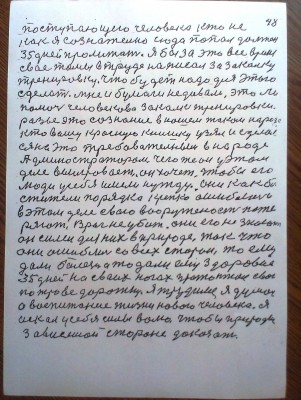 48
поступающего человека кто не
как я сознательно сюда попал должен
35 дней пролежать. Я бы за это все время
свое тело в труде написал за закалку
тренировку, что будет надо для этого
сделать. мне и бумаги не давали, это ли
помочь человекова закалки тренировки.
разве это сознание в нашем таком народе
кто вашу красную книжку узял и сделал
ся. Это требовательный в народе
Администратором чего же он у этом
деле выигрывает, он хочет, чтобы его
люди у себя имели нужду. Они как бо
стители порядка крепко ошиблись
в этом деле свою вооруженость поте
ряют, Враг не убит, они его не знают
он силен для них в природе, так что
они ошиблись со всех сторон, то ему
дали болезнь то дали ему здоровья
35 дней на своих ногах протоптал свою
по траве дорожку. Я трудился Я думал
о воспитание жизни нового человека. Я
искал у себя силы воли чтобы природе
зависимой стороне доказать.